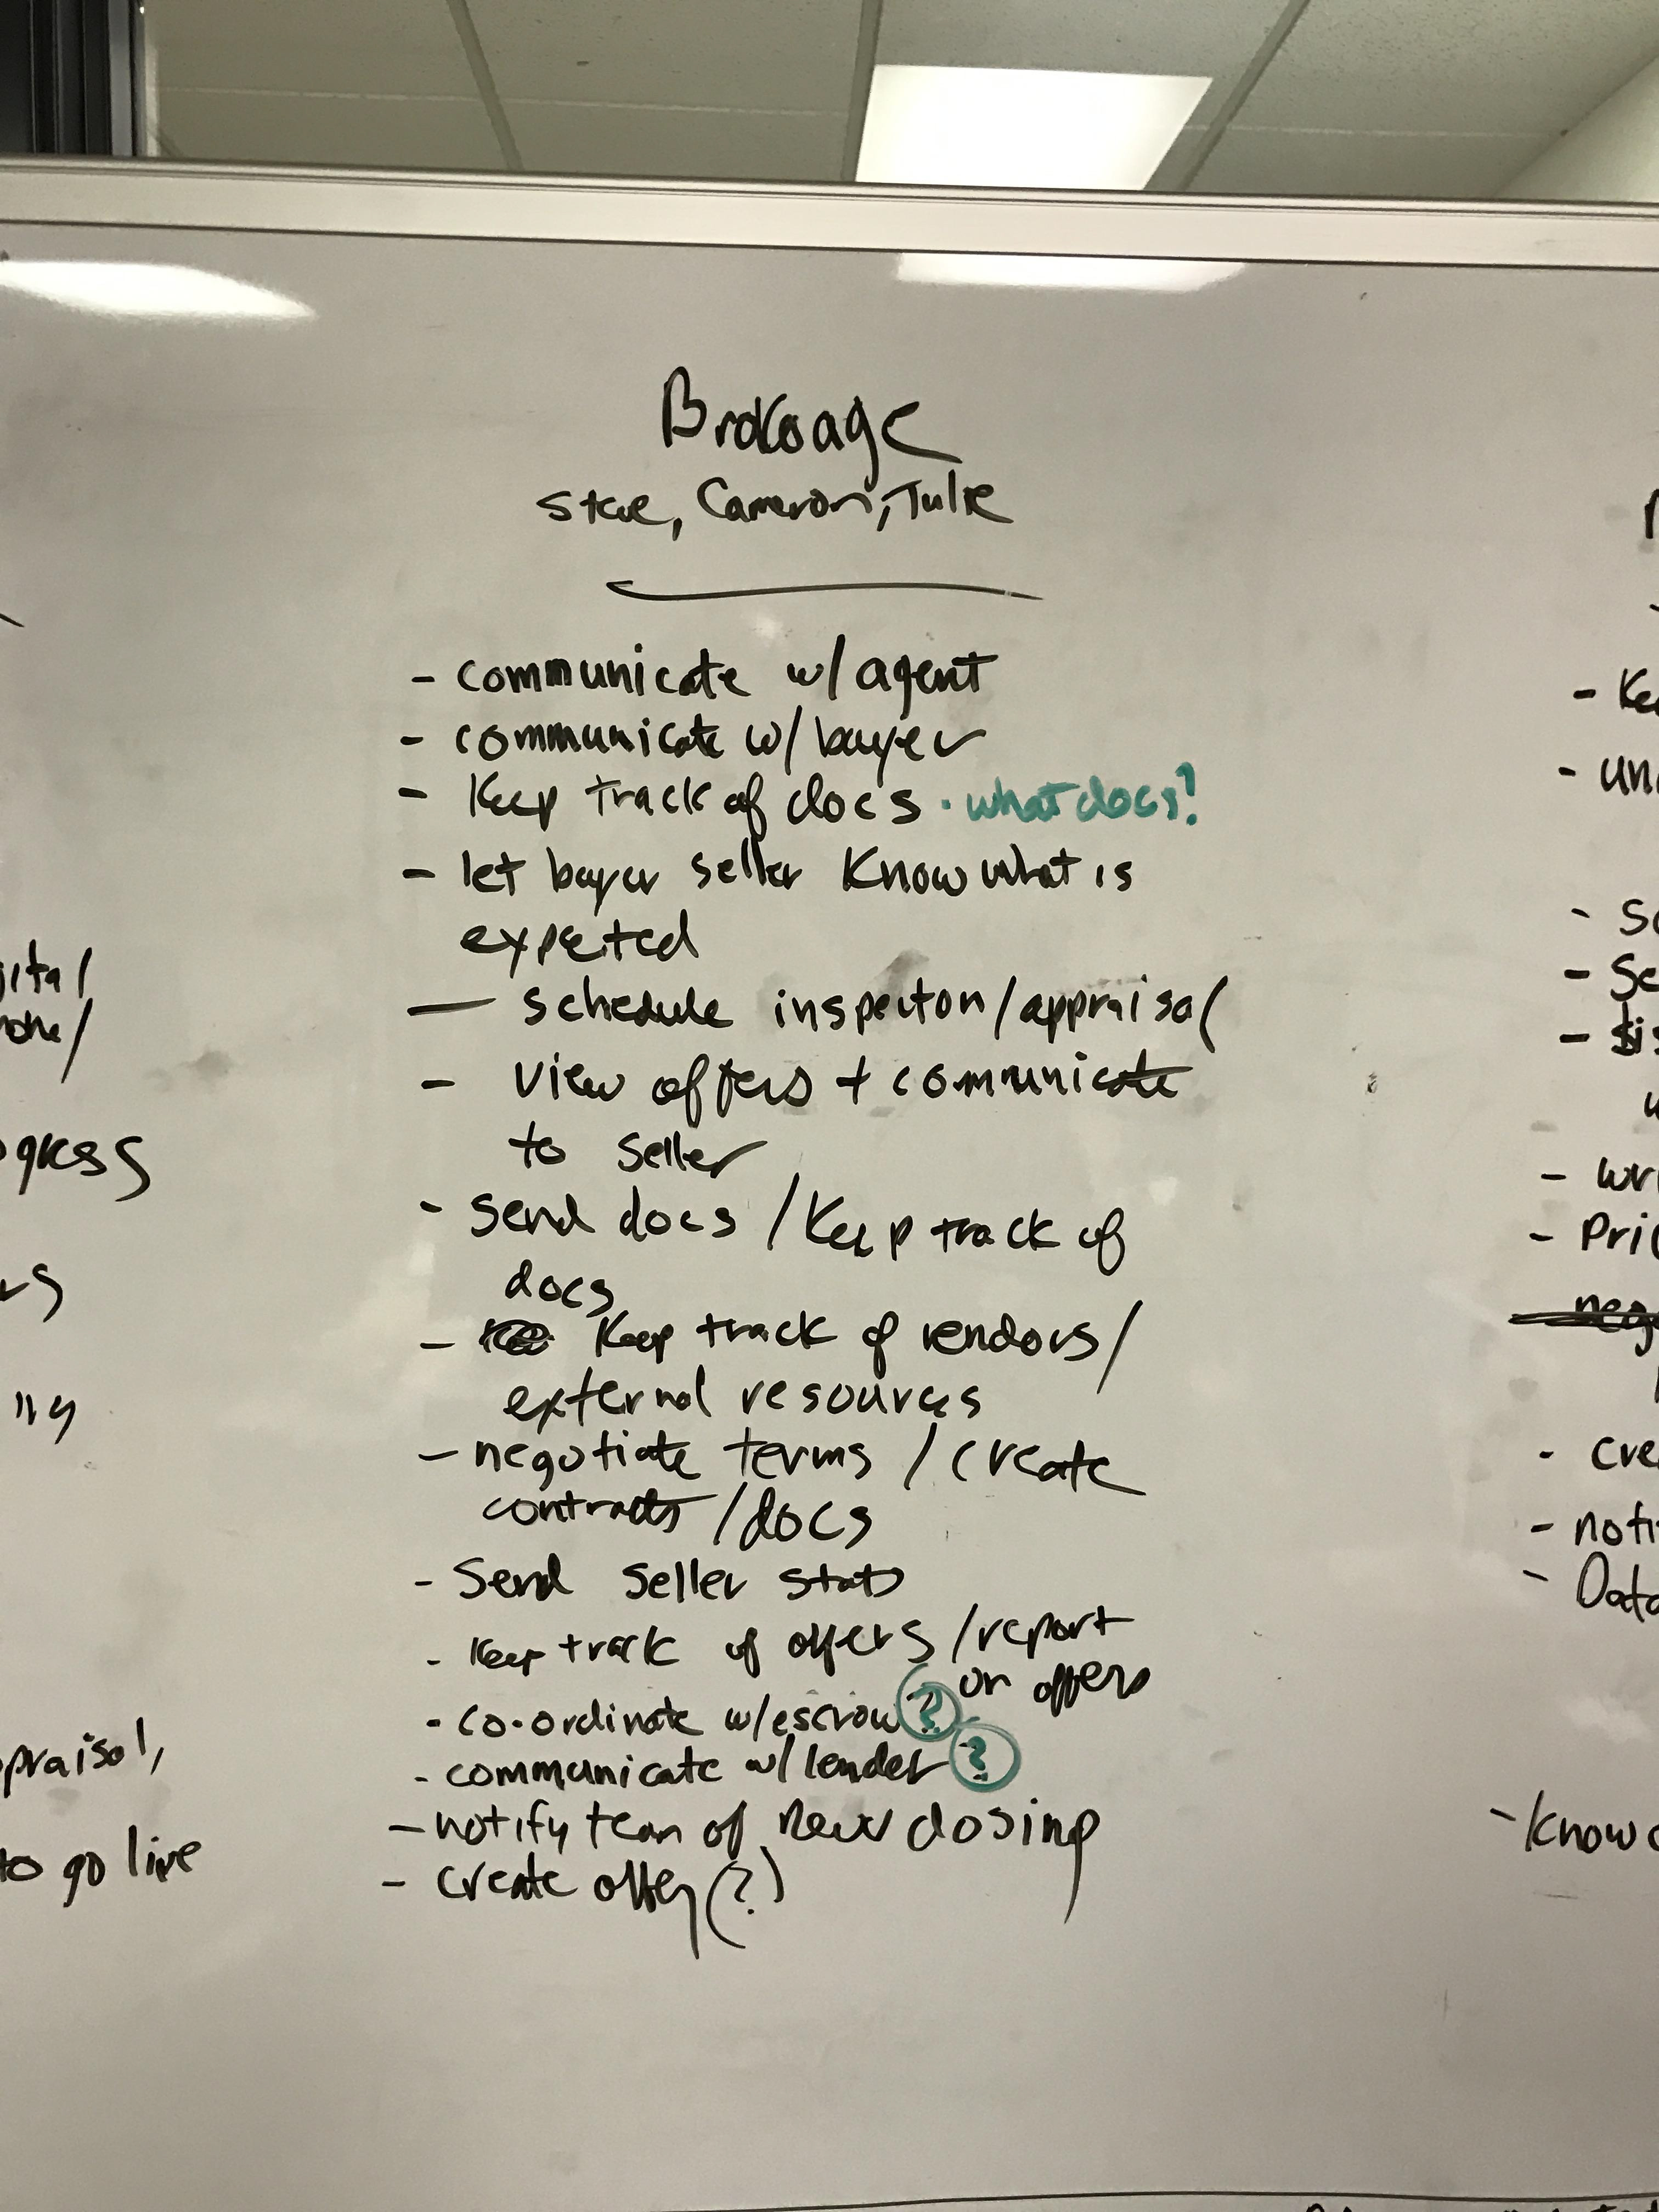 Brokerage
Steve, Cameron, Julie
- communicate w/ agent
- communicate w/ buyer
- Keep track of docs · what docs?
- let buyer seller know what is
expected
- schedule inspection/appraisal
- view offers + communicate
to seller
- send docs / Keep track of
docs
- Keep track of vendors/
external resources
- negotiate terms / create
contracts /docs
- Send seller stats
- Keep track of offers /report
on offers
- co-ordinate w/escrow ?
- communicate w/ lender ?
- notify team of new closing
- create offer (?)
gital
praisal,
to go live
- Ke
- un
- Sc
- Sc
- wr
- Pri
neg
- cre
- noti
- Data
- Know